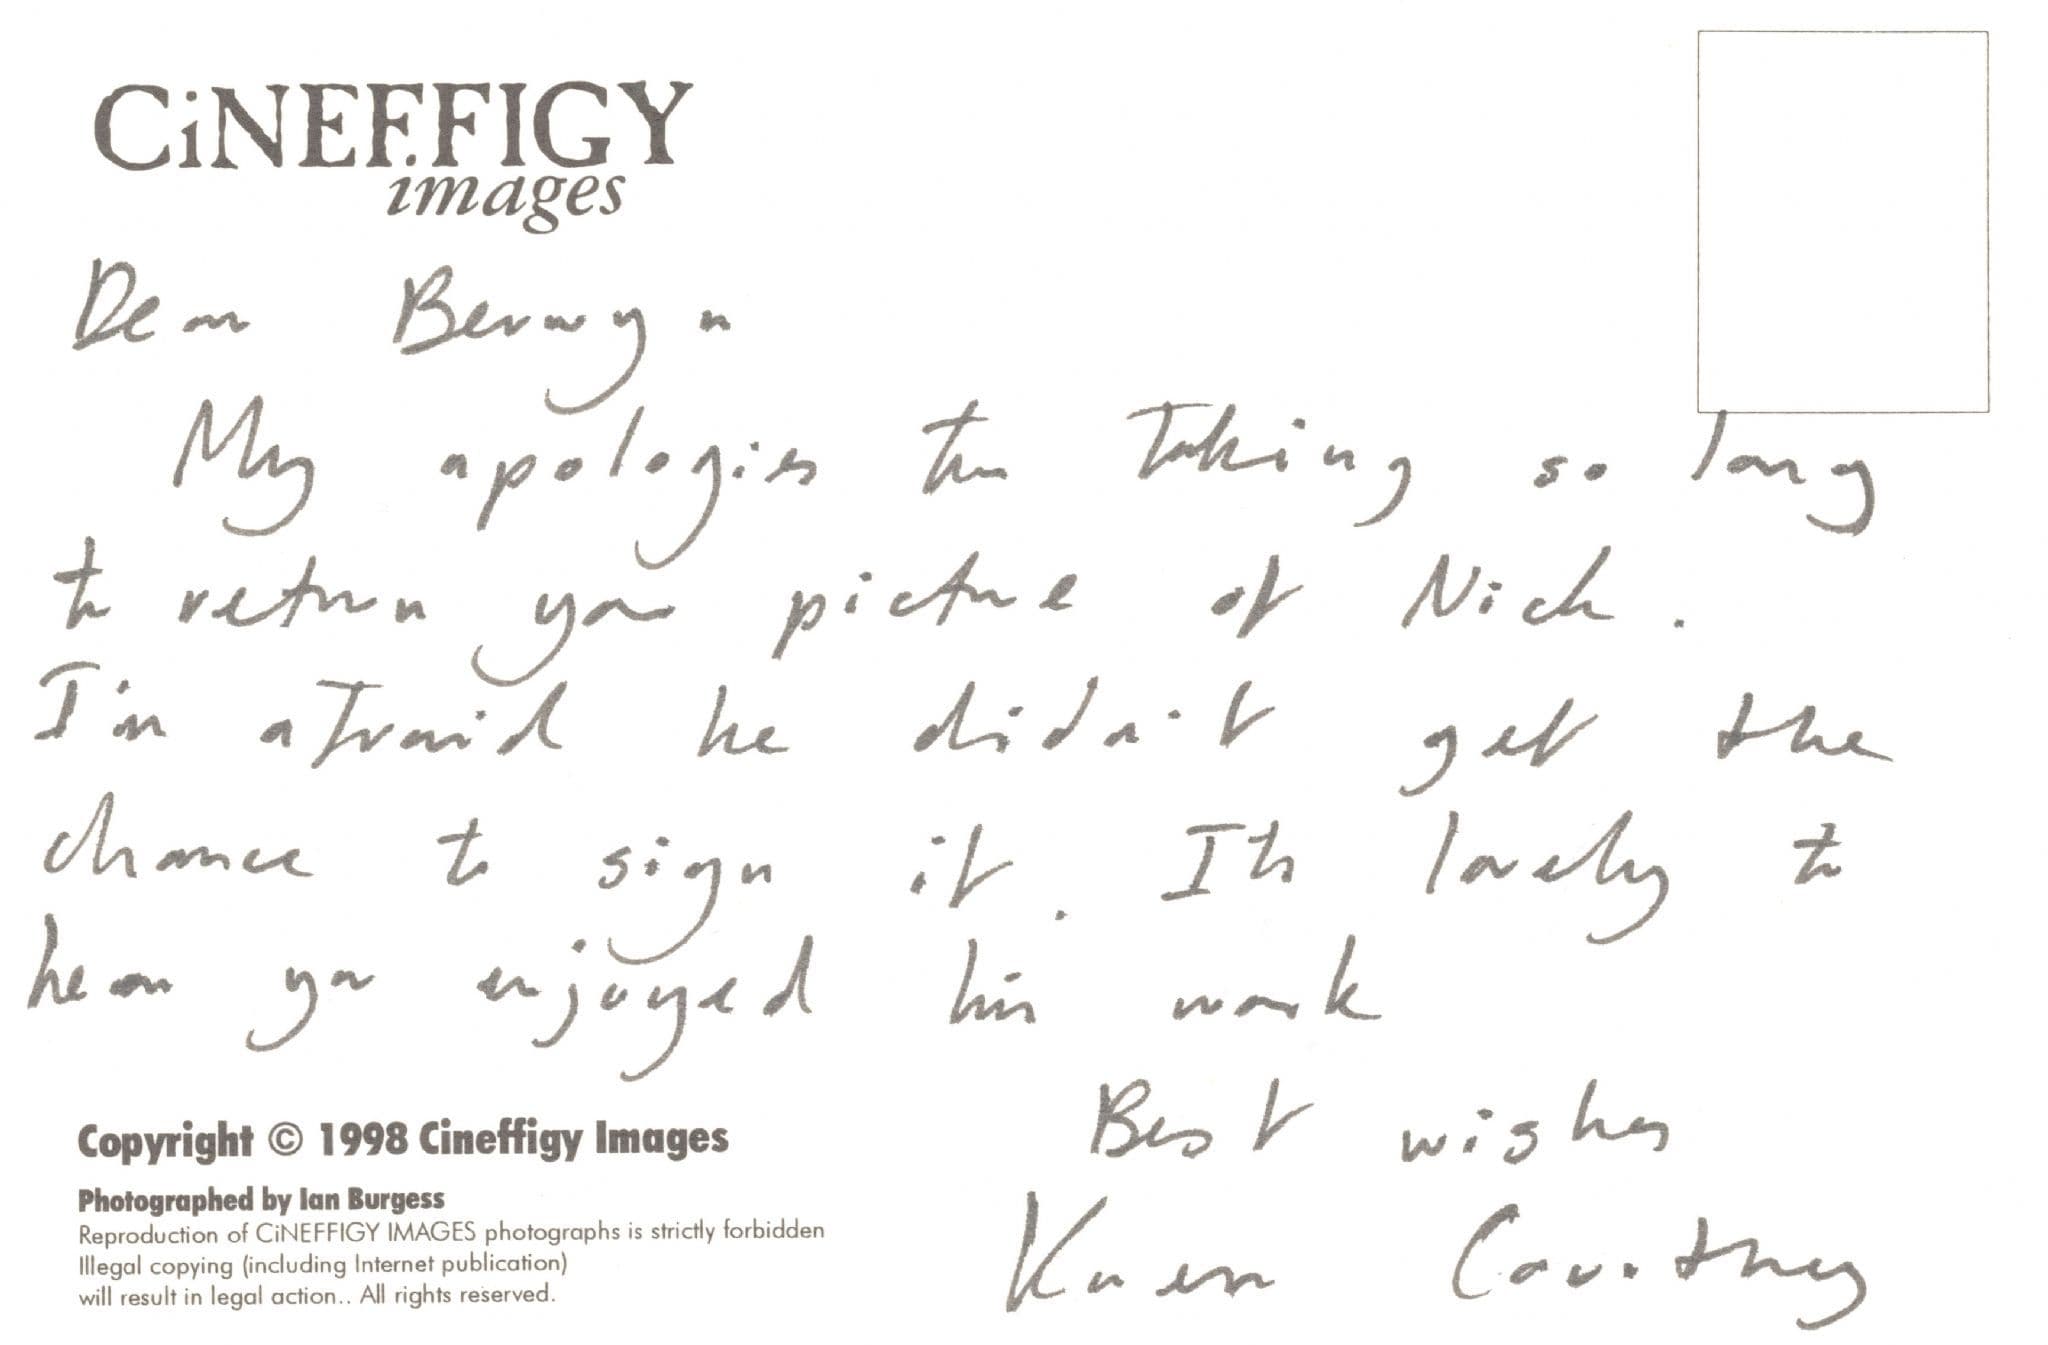 CiNEFFIGY
images
Dear Berwyn
My apologies for taking so long
to return your picture of Nick.
I'm afraid he didn't get the
chance to sign it. It's lovely to
hear you enjoyed his work
Best wishes
Karen Courtney
Copyright © 1998 Cineffigy Images
Photographed by Ian Burgess
Reproduction of CiNEFFIGY IMAGES photographs is strictly forbidden
Illegal copying (including Internet publication)
will result in legal action.. All rights reserved.